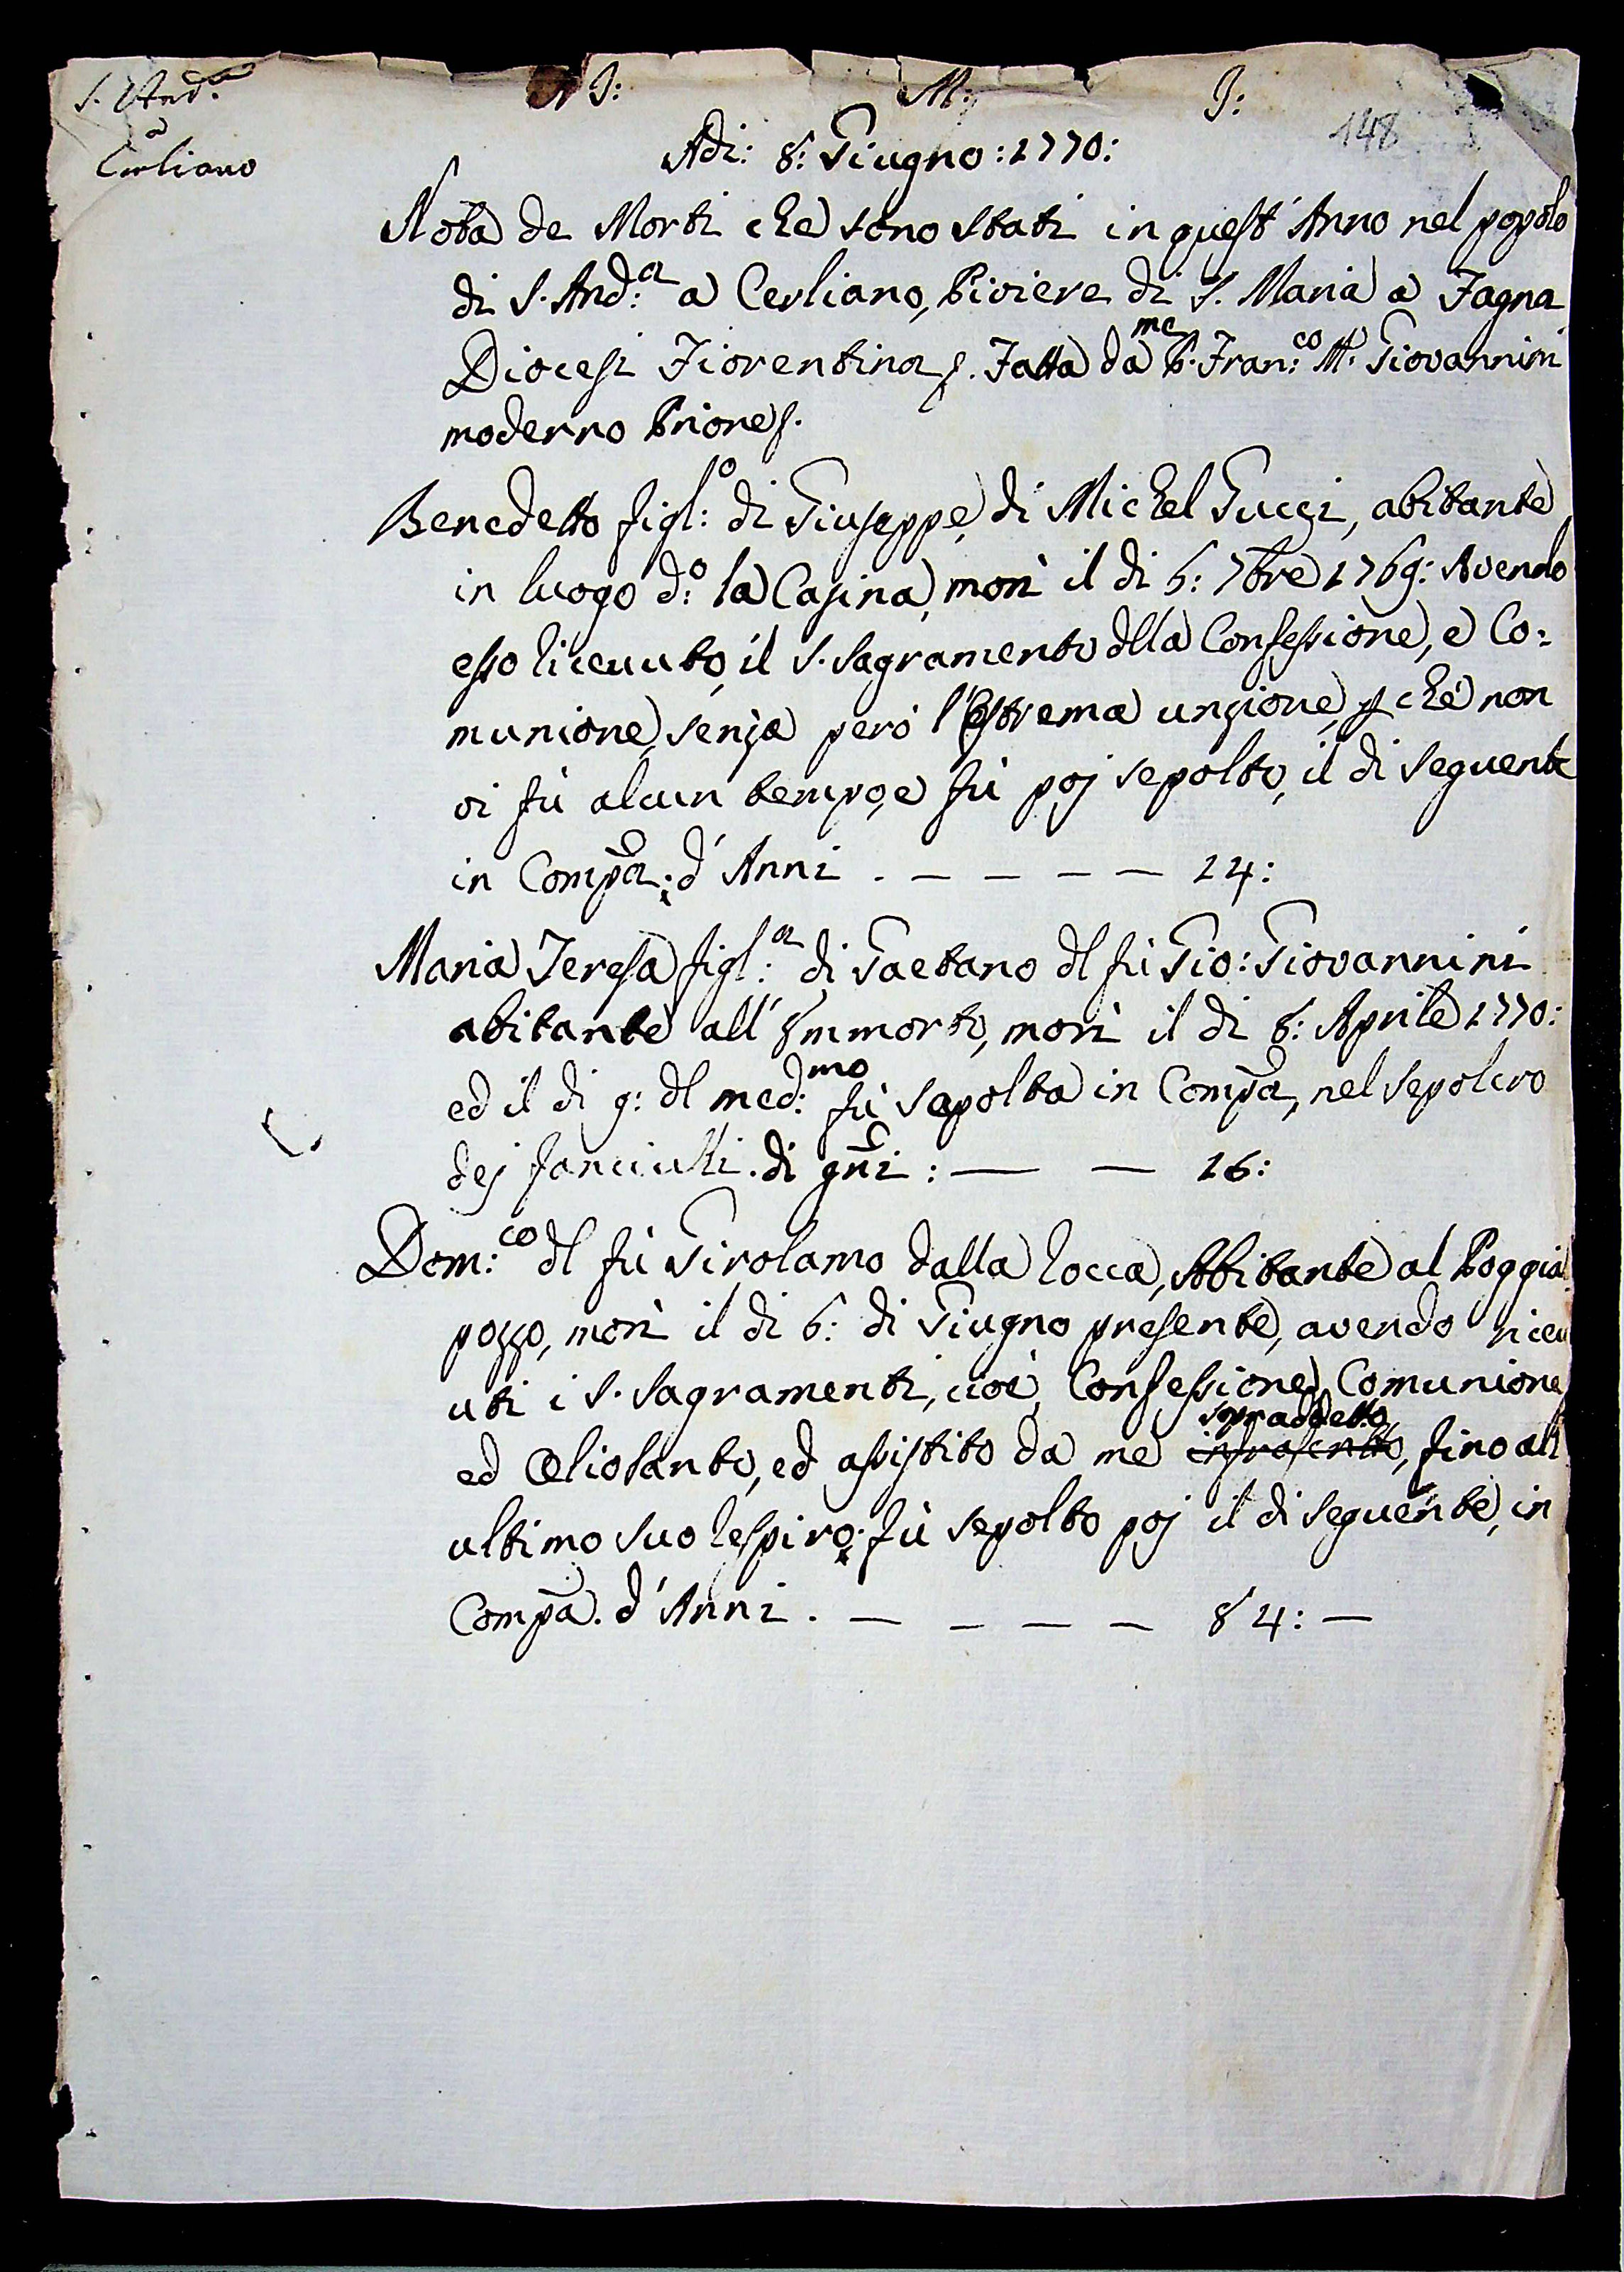 S. And.a
a
Cerliano
J: M: J:
148
Adi: 8: Giugno: 1770:
Nota de Morti che sono stati in quest' Anno nel popolo
di S. And:a a Cerliano, Piviere di S. Maria a Fagna
Diocesi Fiorentina. Fatta da me P. Fran:co M: Giovannini
moderno Priore.
Benedetto figl:o di Giuseppe, di Michel Gucci, abitante
in luogo d:o la Casina, morì il di 6: 7bre 1769: Avendo
esso riceuuto, il S. Sagramento dlla Confessione, e Co:
munione, senza però l'Estrema unzione, p che non
vi fù alcun tempo, e fù poj sepolto, il di seguente
in Compa; d'Anni . — — — — 24:
Maria Teresa figl:a di Gaetano dl fù Gio: Giovannini
abitante all' Immorto, morì il di 8: Aprile 1770:
ed il di 9: dl med:mo fù sepolta in Compa, nel sepolcro
dej fanciulli. di gni: — — 16:
Dom:co dl fù Girolamo dalla Rocca, Abitante al Poggial
pozzo, morì il di 6: di Giugno presente, avendo riceu
uti i S. Sagramenti, cioè, Confessione, Comunione,
ed Oliosanto, ed assistito da me infrascritto sopraddetto, fino all
ultimo suo respiro; fù sepolto poj il di seguente, in
Compa. d'Anni . — — — — 84: —